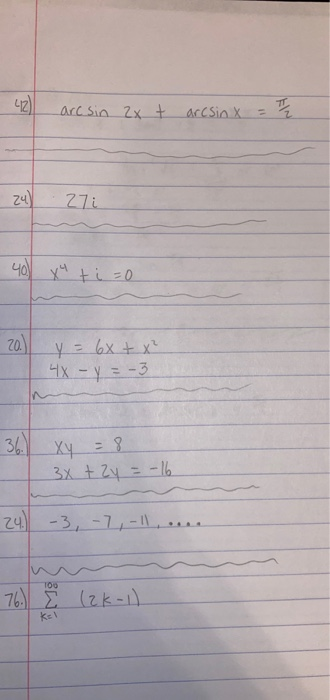 42) arcsin 2x + arcsin x = π/2
24) 27i
40) x⁴ + i = 0
20.) y = 6x + x²
4x - y = -3
36.) xy = 8
3x + 2y = -16
24.) -3, -7, -11, ....
76.) 100 Σ k=1 (2k-1)